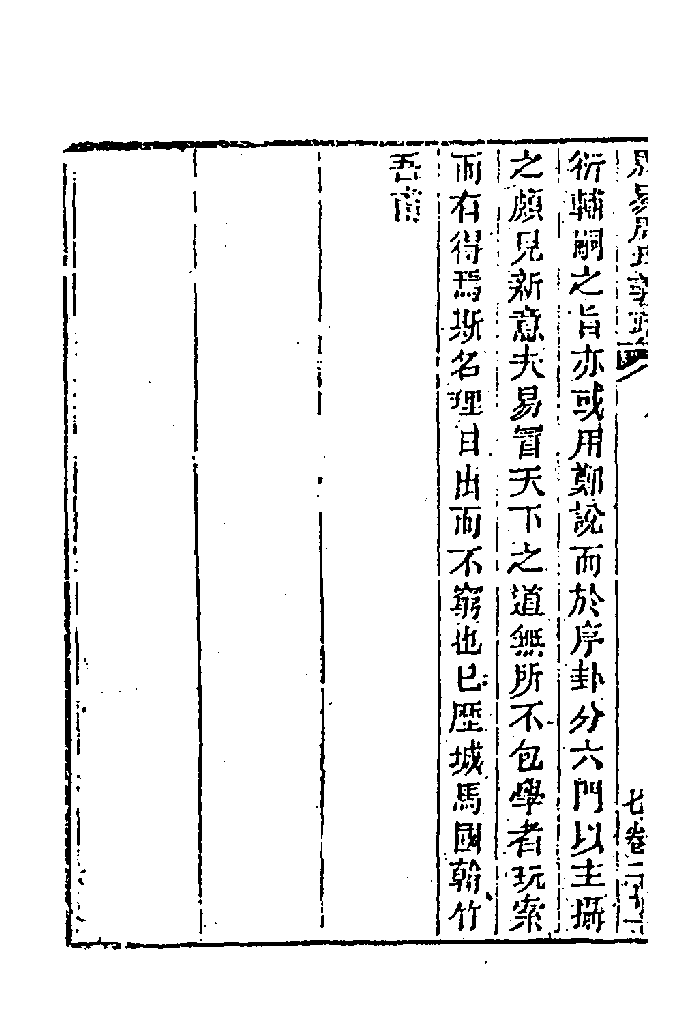 衍輔嗣之旨亦或用鄭說而於序卦分六門以主攝
之頗見新意夫易冒天下之道無所不包學者玩索
而有得焉斯名理日出而不窮也已歷城馬國翰竹
吾甫